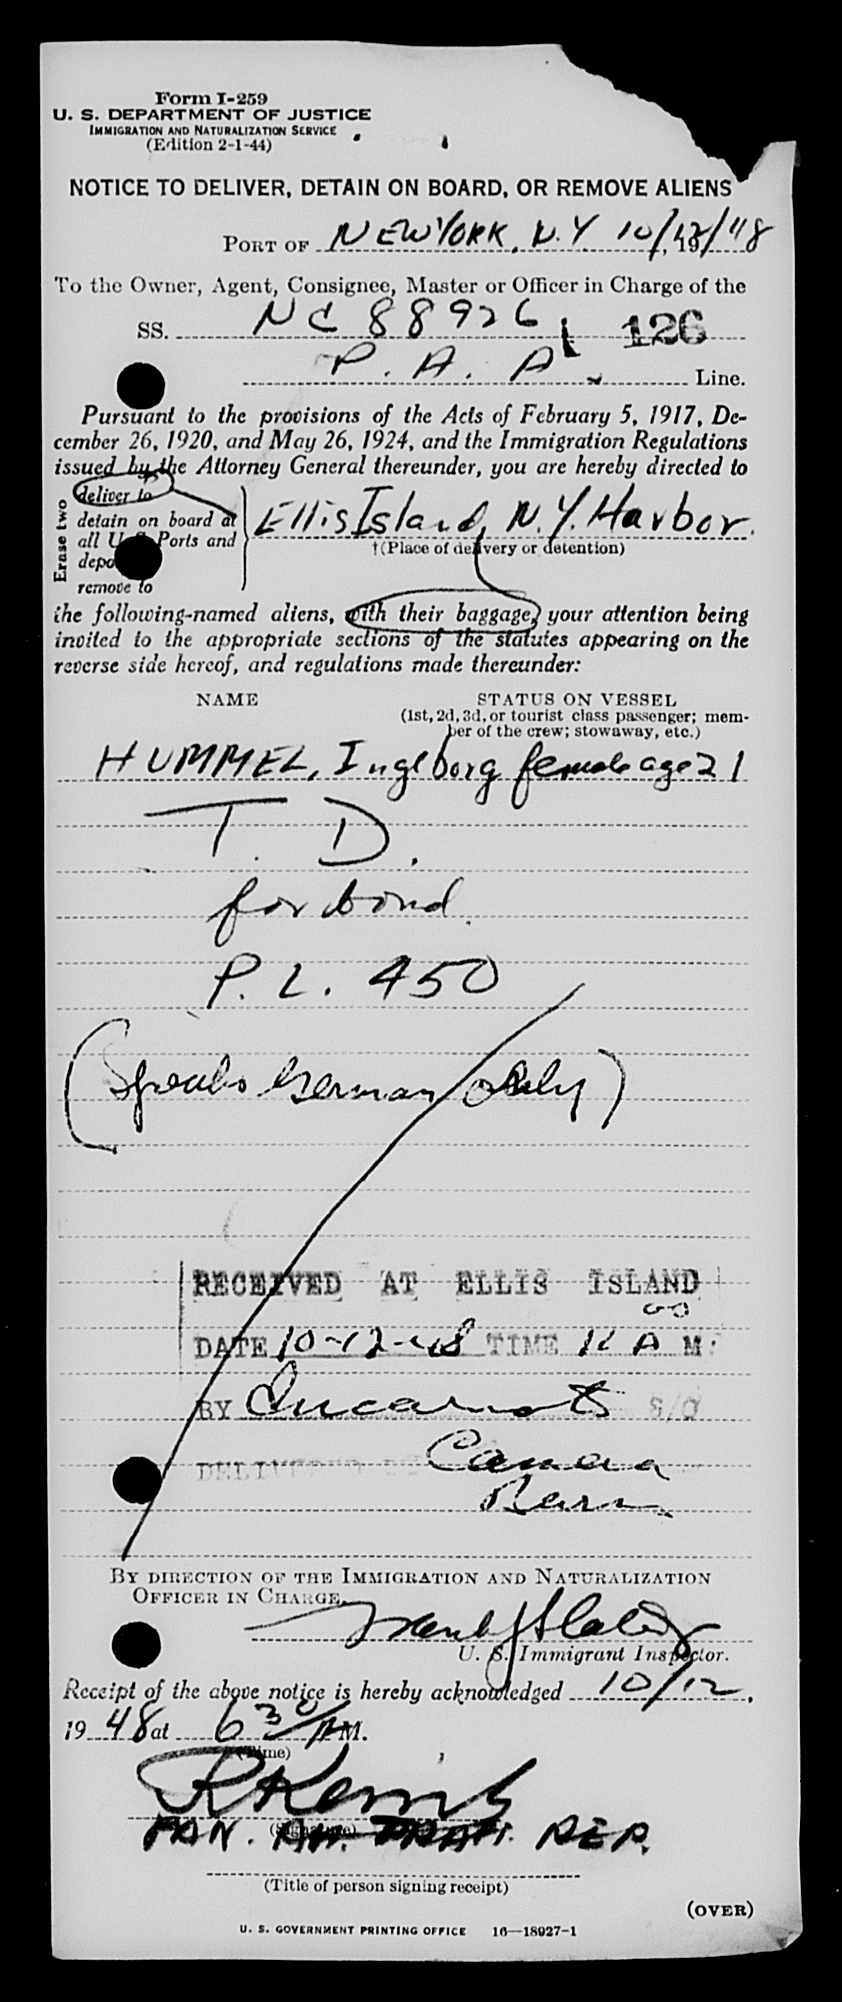 Form I-259
U. S. DEPARTMENT OF JUSTICE
IMMIGRATION AND NATURALIZATION SERVICE
(Edition 2-1-44)
NOTICE TO DELIVER, DETAIN ON BOARD, OR REMOVE ALIENS
PORT OF NEW YORK, N.Y 10/12/48
To the Owner, Agent, Consignee, Master or Officer in Charge of the
SS. NC 88926 126
P. A. A. Line.
Pursuant to the provisions of the Acts of February 5, 1917, De-
cember 26, 1920, and May 26, 1924, and the Immigration Regulations
issued by the Attorney General thereunder, you are hereby directed to
Erase two
deliver to
detain on board at
all U. S. Ports and
remove to
Ellis Island, N.Y. Harbor.
†(Place of delivery or detention)
the following-named aliens, with their baggage, your attention being
invited to the appropriate sections of the statutes appearing on the
reverse side hereof, and regulations made thereunder:
NAME STATUS ON VESSEL
(1st, 2d, 3d, or tourist class passenger; mem-
ber of the crew; stowaway, etc.)
HUMMEL, Ingeborg female age 21
T. D.
for bond.
P. L. 450
(Speaks German only)
RECEIVED AT ELLIS ISLAND
DATE 10-12-48 TIME 11 00 A M.
BY S/O
DELIVERED
BY DIRECTION OF THE IMMIGRATION AND NATURALIZATION
OFFICER IN CHARGE.
U. S. Immigrant Inspector.
Receipt of the above notice is hereby acknowledged 10/12,
1948 at 6 30 AM.
(Time)
(Signature)
PAN. AM. REP.
(Title of person signing receipt)
(OVER)
U. S. GOVERNMENT PRINTING OFFICE 16—18927-1